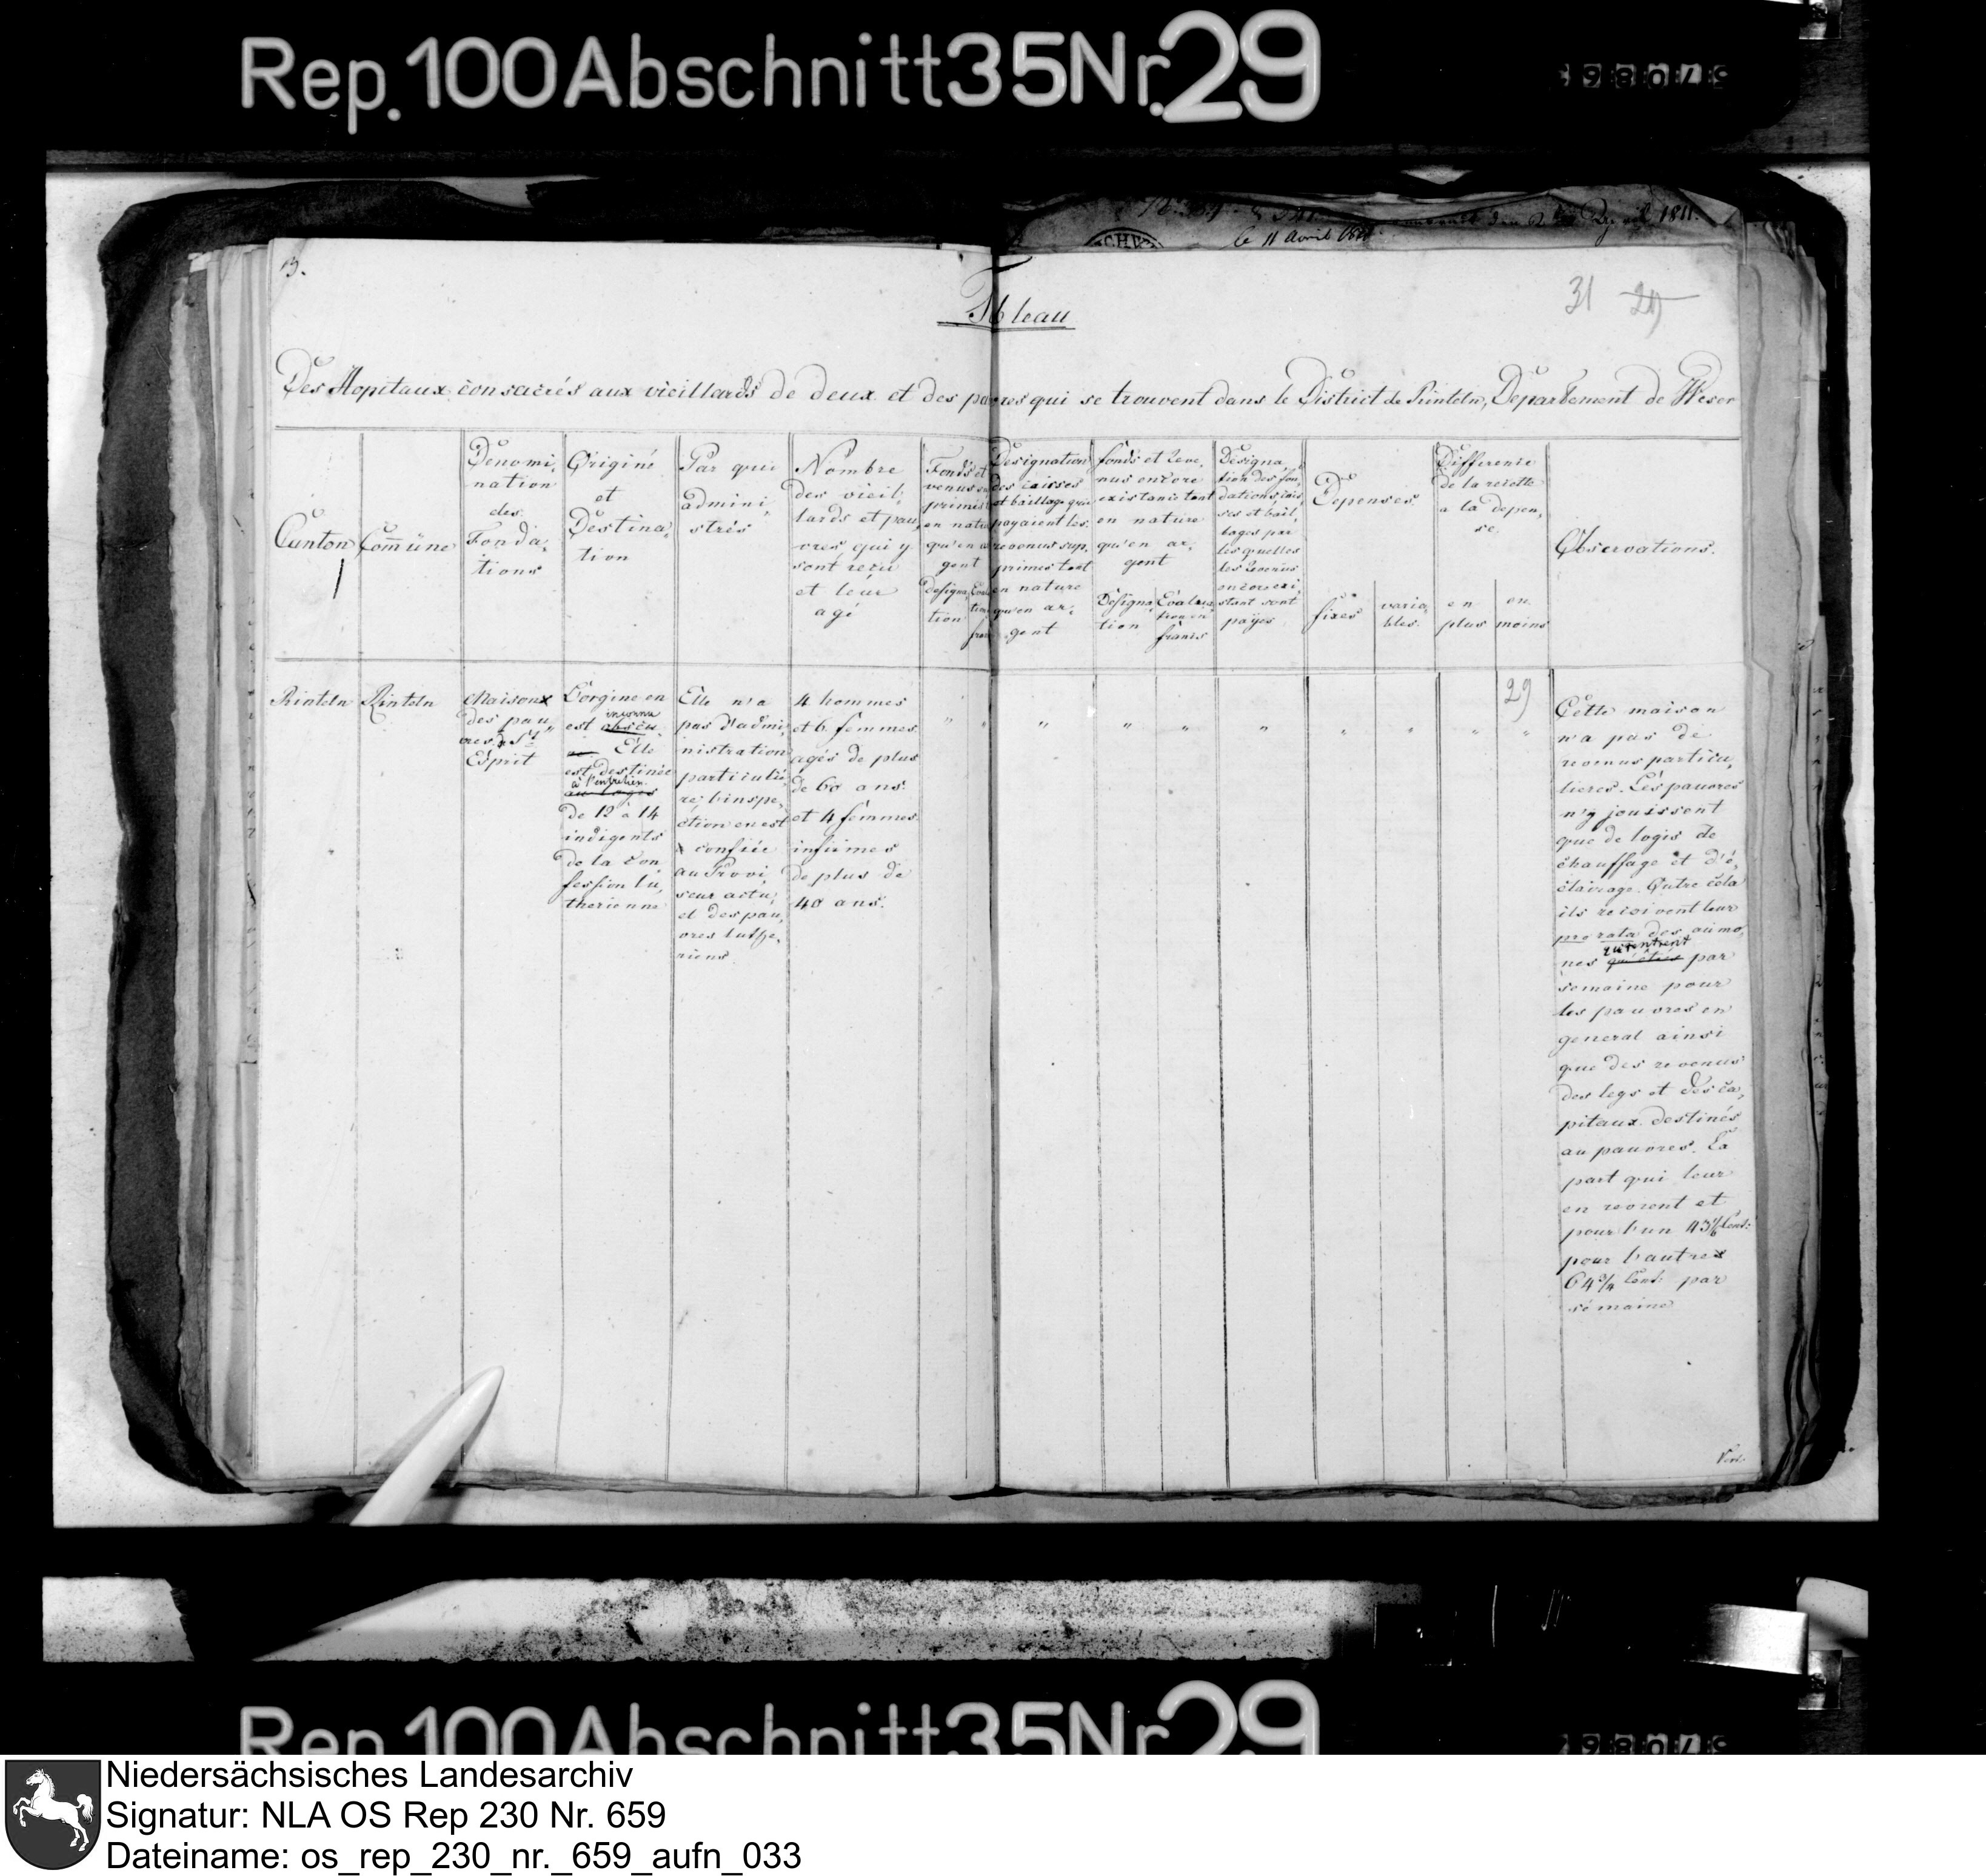 Rep. 100 Abschnitt 35 Nr. 29
le 11 Avril
1811.
13.
31 29
Tableau
Des Hopitaux consacrés aux vieillards de deux et des pauvres qui se trouvent dans le District de Rinteln, Departement de Weser
Canton
Commüne
Denomi,
nation
des
Fonda,
tions
Origine
et
Destina,
tion
Par qui
admini,
strés
Nombre
des vieil,
lards et pau,
vres qui y
sont reçu
et leur
agé
Fonds et
venus
primés
en natu
qu'en a
gent
designa,
tion
Designation
des caisses
et baillage qui
payaient les
revenus sup,
primés tant
en nature
qu'en ar,
gent
fonds et Reve,
nus encore
existants tant
en nature
qu'en ar,
gent
Designa,
tion
Evalua,
tion en
francs
Designa,
tion des fon,
dations, cais,
ses et bail,
lages par
les quelles
les Revenus
encore exi,
stant sont
payés
Depenses.
fixes
varia,
bles
Difference
de la recette
a la depen,
se.
en
plus
en
moins
Observations.
Rinteln
Rinteln
Maison
des pau,
vres de St
Esprit
L'orgine en
inconnu
est obscu,
re Elle
est destinée
à l'entretien
au logis
de 12 à 14
indigents
de la con,
fession lu,
therienne
Elle n'a
pas d'admi,
nistration
particuliè,
re, l'inspe,
ction en est
confiée
au Provi,
seur actu,
el des pau,
vres luthe,
riens.
4 hommes
et 6 femmes
agés de plus
de 60 ans.
et 4 femmes
infirmes
de plus de
40 ans.
" " " " " " " " " "
29
Cette maison
n'a pas de
revenus particu,
lieres. Les pauvres
n'y jouissent
que de logis de
chauffage et d'é,
clairage. Outre cela
ils recoivent leur
pro rata des aumo,
qui entrent
nes par
semaine pour
les pauvres en
general ainsi
que des revenus
des legs et des ca,
pitaux destinés
au pauvres. La
part qui leur
en revient et
pour l'un 43 1/6 Cent:
pour l'autre
64 3/4 Cent: par
semaine
Rep. 100 Abschnitt 35 Nr. 29
Niedersächsisches Landesarchiv
Signatur: NLA OS Rep 230 Nr. 659
Dateiname: os_rep_230_nr._659_aufn_033